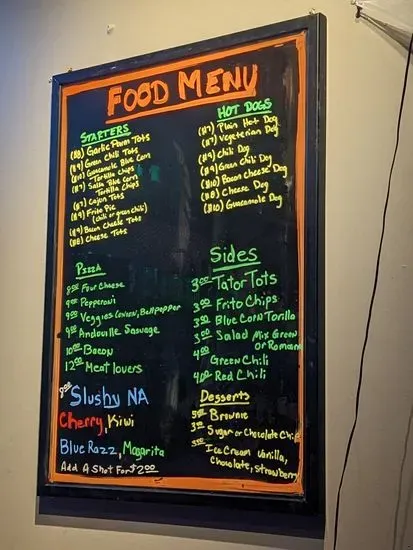 FOOD MENU
STARTERS
($8) Garlic Parm Tots
($9) Green Chili Tots
($10) Guacamole Blue Corn
Tortilla Chips
($7) Salsa Blue Corn
Tortilla Chips
($7) Cajun Tots
($9) Frito Pie
(chili or green chili)
($9) Bacon Cheese Tots
($8) Cheese Tots
HOT DOGS
($7) Plain Hot Dog
($7) Vegeterian Dog
($9) Chili Dog
($9) Green Chili Dog
($10) Bacon Cheese Dog
($8) Cheese Dog
($10) Guacamole Dog
PIZZA
8.00 Four Cheese
9.00 Pepperoni
9.00 Veggies (onion, Bellpepper
9.00 Andouille Sausage
10.00 Bacon
12.00 Meat lovers
Sides
3.00 Tator Tots
3.00 Frito Chips
3.00 Blue Corn Torilla
3.00 Salad Mix Green
or Romaine
4.00 Green Chili
4.00 Red Chili
9.00 Slushy NA
Cherry, Kiwi
Blue Razz, Magarita
Add A Shot For $2.00
Desserts
5.00 Brownie
3.00 Sugar or Chocolate Chip
5.00 Ice Cream Vanilla,
Chocolate, Strawberry